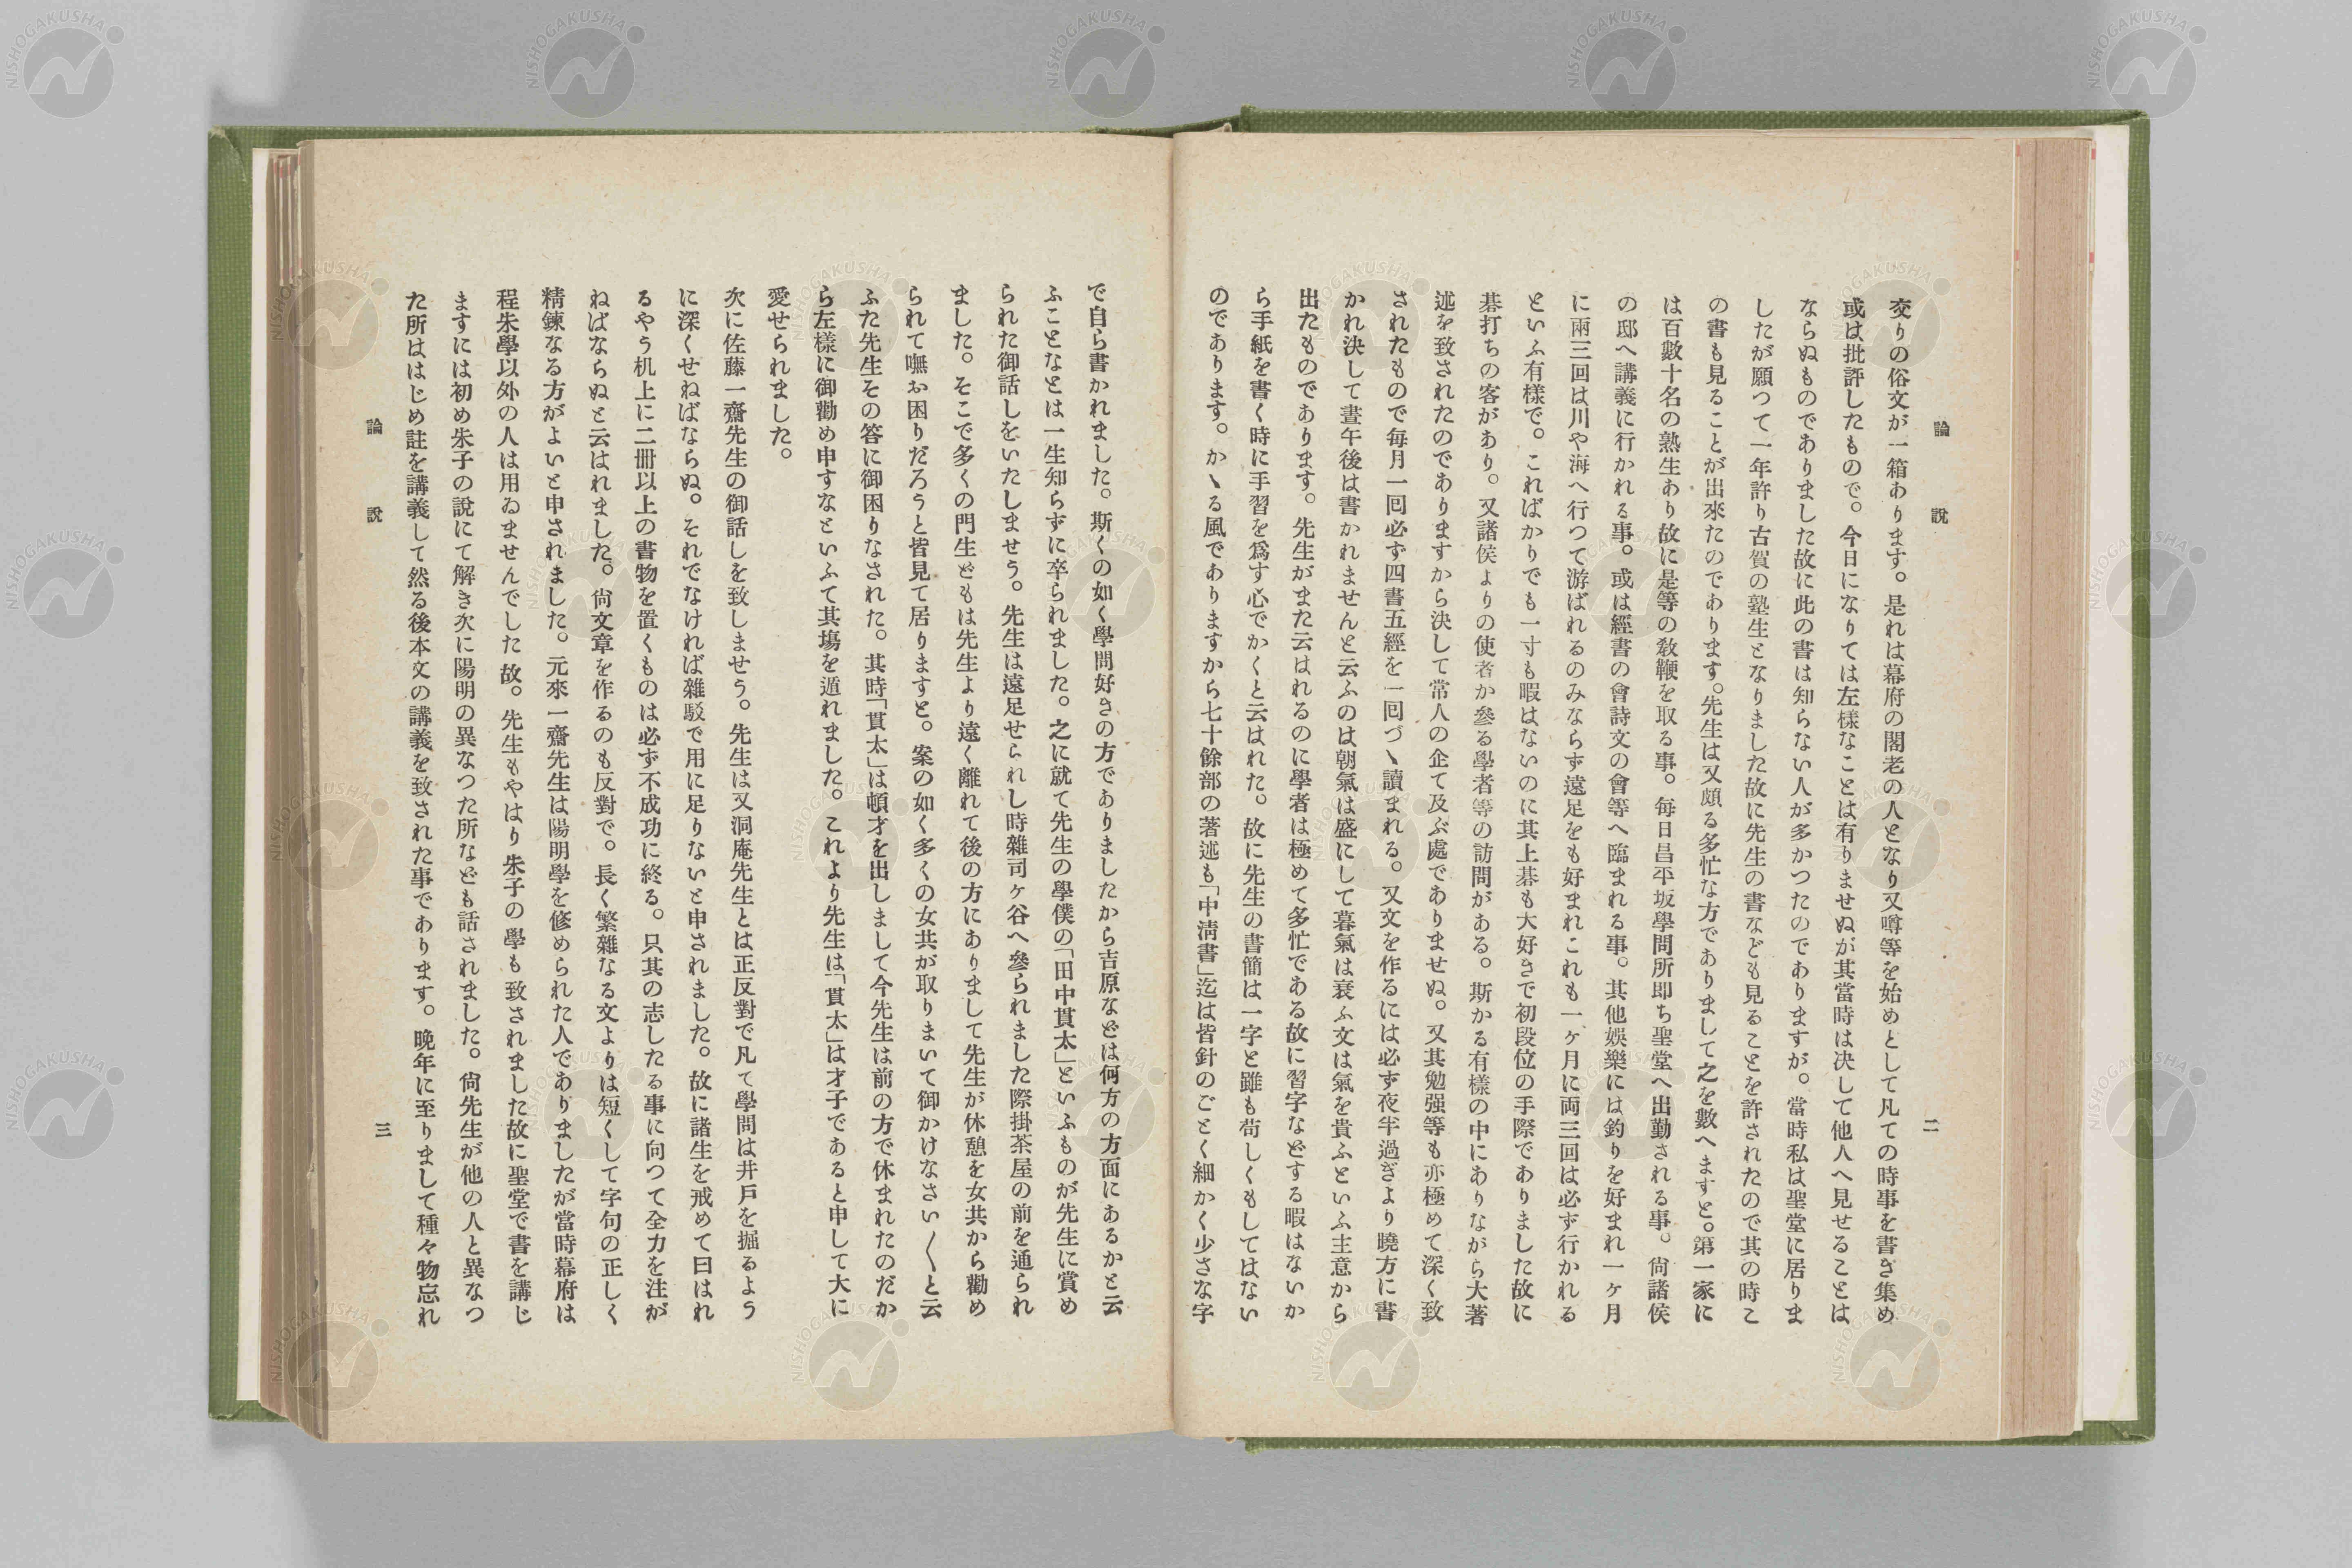 論說
二
交りの俗文が一箱あります。是れは幕府の閣老の人となり又噂等を始めとして凡ての時事を書き集め
或は批評したもので。今日になりては左樣なことは有りませぬが其當時は决して他人へ見せることは
ならぬものでありました故に此の書は知らない人が多かつたのでありますが。當時私は聖堂に居りま
したが願つて一年許り古賀の塾生となりました故に先生の書なども見ることを許されたので其の時こ
の書も見ることが出來たのであります。先生は又頗る多忙な方でありまして之を數へますと。第一家に
は百數十名の熟生あり故に是等の敎鞭を取る事。每日昌平坂學問所即ち聖堂へ出勤される事。尙諸侯
の邸へ講義に行かれる事。或は經書の會詩文の會等へ臨まれる事。其他娛樂には釣りを好まれ一ヶ月
に兩三回は川や海へ行つて游ばれるのみならず遠足をも好まれこれも一ヶ月に両三回は必ず行かれる
といふ有樣で。こればかりでも一寸も暇はないのに其上碁も大好きで初段位の手際でありました故に
碁打ちの客があり。又諸侯よりの使者か參る學者等の訪問がある。斯かる有樣の中にありながら大著
述を致されたのでありますから決して常人の企て及ぶ處でありませぬ。又其勉强等も亦極めて深く致
されたもので每月一回必ず四書五經を一回づヽ讀まれる。又文を作るには必ず夜半過ぎより曉方に書
かれ決して晝午後は書かれませんと云ふのは朝氣は盛にして暮氣は衰ふ文は氣を貴ふといふ主意から
出たものであります。先生がまた云はれるのに學者は極めて多忙である故に習字などする暇はないか
ら手紙を書く時に手習を爲す心でかくと云はれた。故に先生の書簡は一字と雖も苟しくもしてはない
のであります。かヽる風でありますから七十餘部の著述も「中淸書」迄は皆針のごとく細かく少さな字
で自ら書かれました。斯くの如く學問好きの方でありましたから吉原などは何方の方面にあるかと云
ふことなとは一生知らずに卒られました。之に就て先生の學僕の「田中貫太」といふものが先生に賞め
られた御話しをいたしませう。先生は遠足せられし時雜司ヶ谷へ參られました際掛茶屋の前を通られ
ました。そこで多くの門生どもは先生より遠く離れて後の方にありまして先生が休憩を女共から勸め
られて嘸お困りだろうと皆見て居りますと。案の如く多くの女共が取りまいて御かけなさい〱と云
ふた先生その答に御困りなされた。其時「貫太」は頓才を出しまして今先生は前の方で休まれたのだか
ら左樣に御勸め申すなといふて其塲を遁れました。これより先生は「貫太」は才子であると申して大に
愛せられました。
次に佐藤一齋先生の御話しを致しませう。先生は又洞庵先生とは正反對で凡て學問は井戸を掘るよう
に深くせねばならぬ。それでなければ雜駁で用に足りないと申されました。故に諸生を戒めて曰はれ
るやう机上に二冊以上の書物を置くものは必ず不成功に終る。只其の志したる事に向つて全力を注が
ねばならぬと云はれました。尙文章を作るのも反對で。長く繁雜なる文よりは短くして字句の正しく
精鍊なる方がよいと申されました。元來一齋先生は陽明學を修められた人でありましたが當時幕府は
程朱學以外の人は用ゐませんでした故。先生もやはり朱子の學も致されました故に聖堂で書を講じ
ますには初め朱子の說にて解き次に陽明の異なつた所なども話されました。尙先生が他の人と異なつ
た所ははじめ註を講義して然る後本文の講義を致された事であります。晚年に至りまして種々物忘れ
論說
三
NISHOGAKUSHA